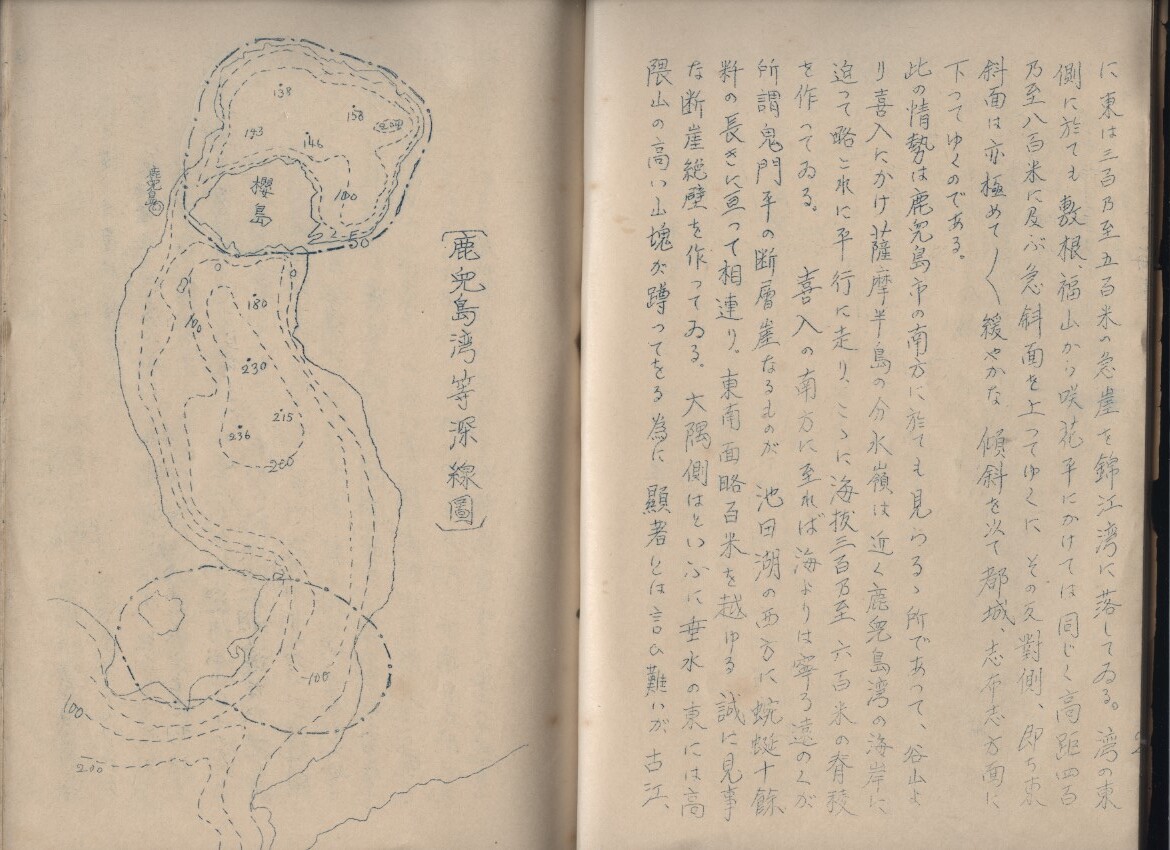 に東は三百乃至五百米の急崖を錦江湾に落してゐる。湾の東
側に於ても敷根、福山から咲花平にかけては同じく高距四百
乃至八百米に及ぶ急斜面を上ってゆくに その反對側、即ち東
斜面は亦極めて〱緩やかな 傾斜を以て都城、志布志方面に
下ってゆくのである。
此の情勢は鹿兒島市の南方に於ても見らるゝ所であって、谷山よ
り喜入にかけ薩摩半島の分水嶺は近く鹿兒島湾の海岸に
迫って略これに平行に走り、こゝに海抜三百乃至六百米の脊稜
を作ってゐる。 喜入の南方に至れば海よりは寧ろ遠のくが
所謂鬼門平の断層崖なるものが 池田湖の西方に蜿蜒十餘
粁の長きに亘って相連り。東南面略百米を越ゆる誠に見事
な断崖絶壁を作ってゐる。大隅側はといふに垂水の東には高
隈山の高い山塊が蹲ってをる為に 顯者とは言ひ難いが古江、
〔鹿兒島湾等深線圖〕
138
158
193
146
櫻島
鹿兒島
100
50
0
0
100
180
230
215
236
200
100
100
200